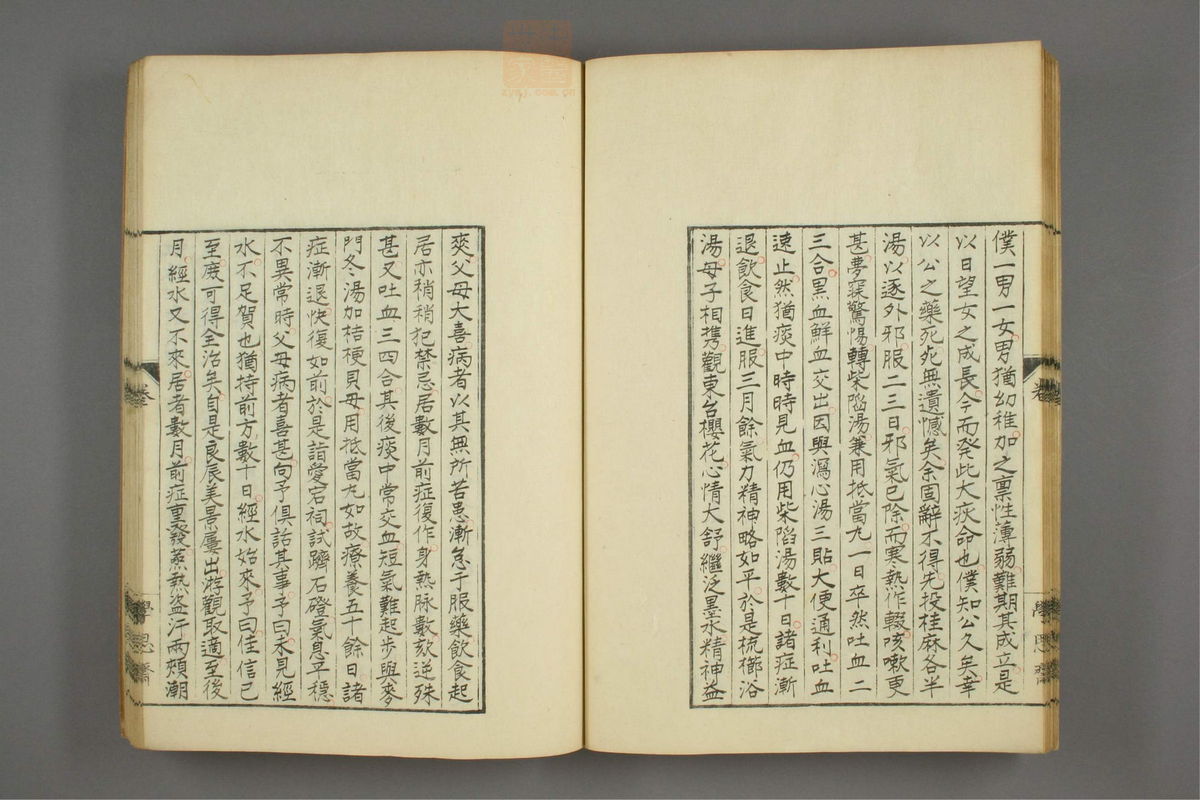 僕一男一女男猶幼稚加之禀性薄弱難期其成立是
以日望女之成長今而発此大疾命也僕知公久矣幸
以公之藥死死無遺憾矣余固辭不得先投桂麻各半
湯以逐外邪服二三日邪氣已除而寒熱作輟咳嗽更
甚夢寐驚惕轉柴陷湯兼用抵當丸一日卒然吐血二
三合黒血鮮血交出因與瀉心湯三貼大便通利吐血
速止然猶痰中時時見血仍用柴陷湯數十日諸症漸
退飲食日進服三月餘氣力精神略如平於是梳櫛浴
湯母子相携觀東台櫻花心情大舒繼泛墨水精神益
爽父母大喜病者以其無所苦患漸怠于服藥飲食起
居亦稍稍犯禁忌居數月前症復作身熱脉數欬逆殊
甚又吐血三四合其後痰中常交血短氣難起步與麥
門冬湯加桔梗貝母用抵當丸如故療養五十餘日諸
症漸退快復如前於是詣愛宕祠試躋石磴氣息平穩
不異常時父母病者喜甚句予俱話其事予曰未見經
水不足賀也猶持前方數十日經水始來予曰佳信已
至庶可得全治矣自是良辰美景屢出游觀取適至後
月經水又不來居者數月前症重發蒸熱盗汗兩頰潮
卷
學思齋